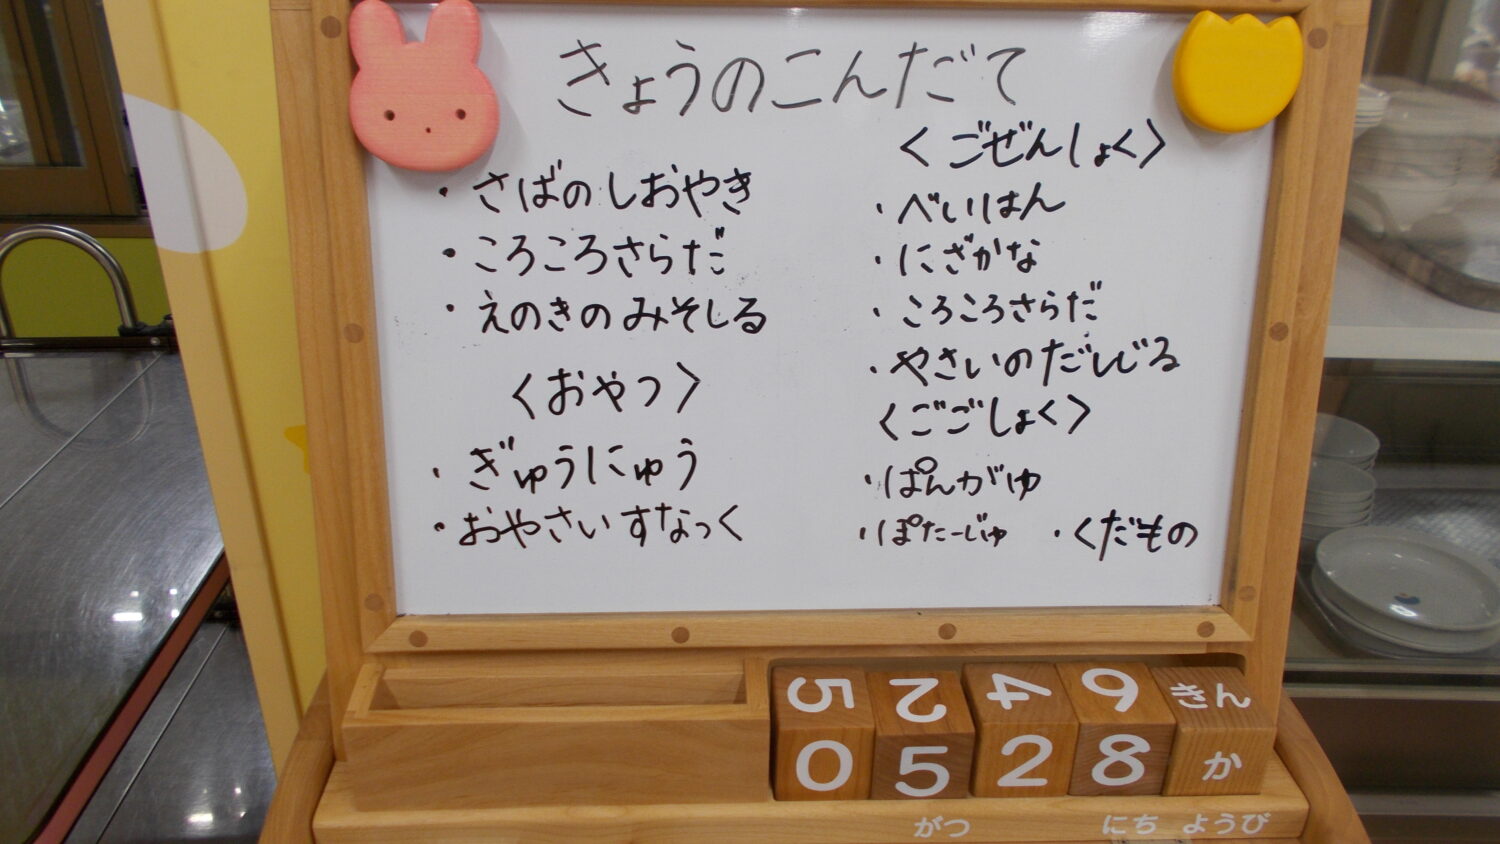 きょうのこんだて
・さばのしおやき
・ころころさらだ
・えのきのみそしる
〈おやつ〉
・ぎゅうにゅう
・おやさいすなっく
〈ごぜんしょく〉
・べいはん
・にざかな
・ころころさらだ
・やさいのだしじる
〈ごごしょく〉
・ぱんがゆ
・ぽたーじゅ ・くだもの
5 2 4 6 きん
0 5 2 8 か
がつ にち ようび